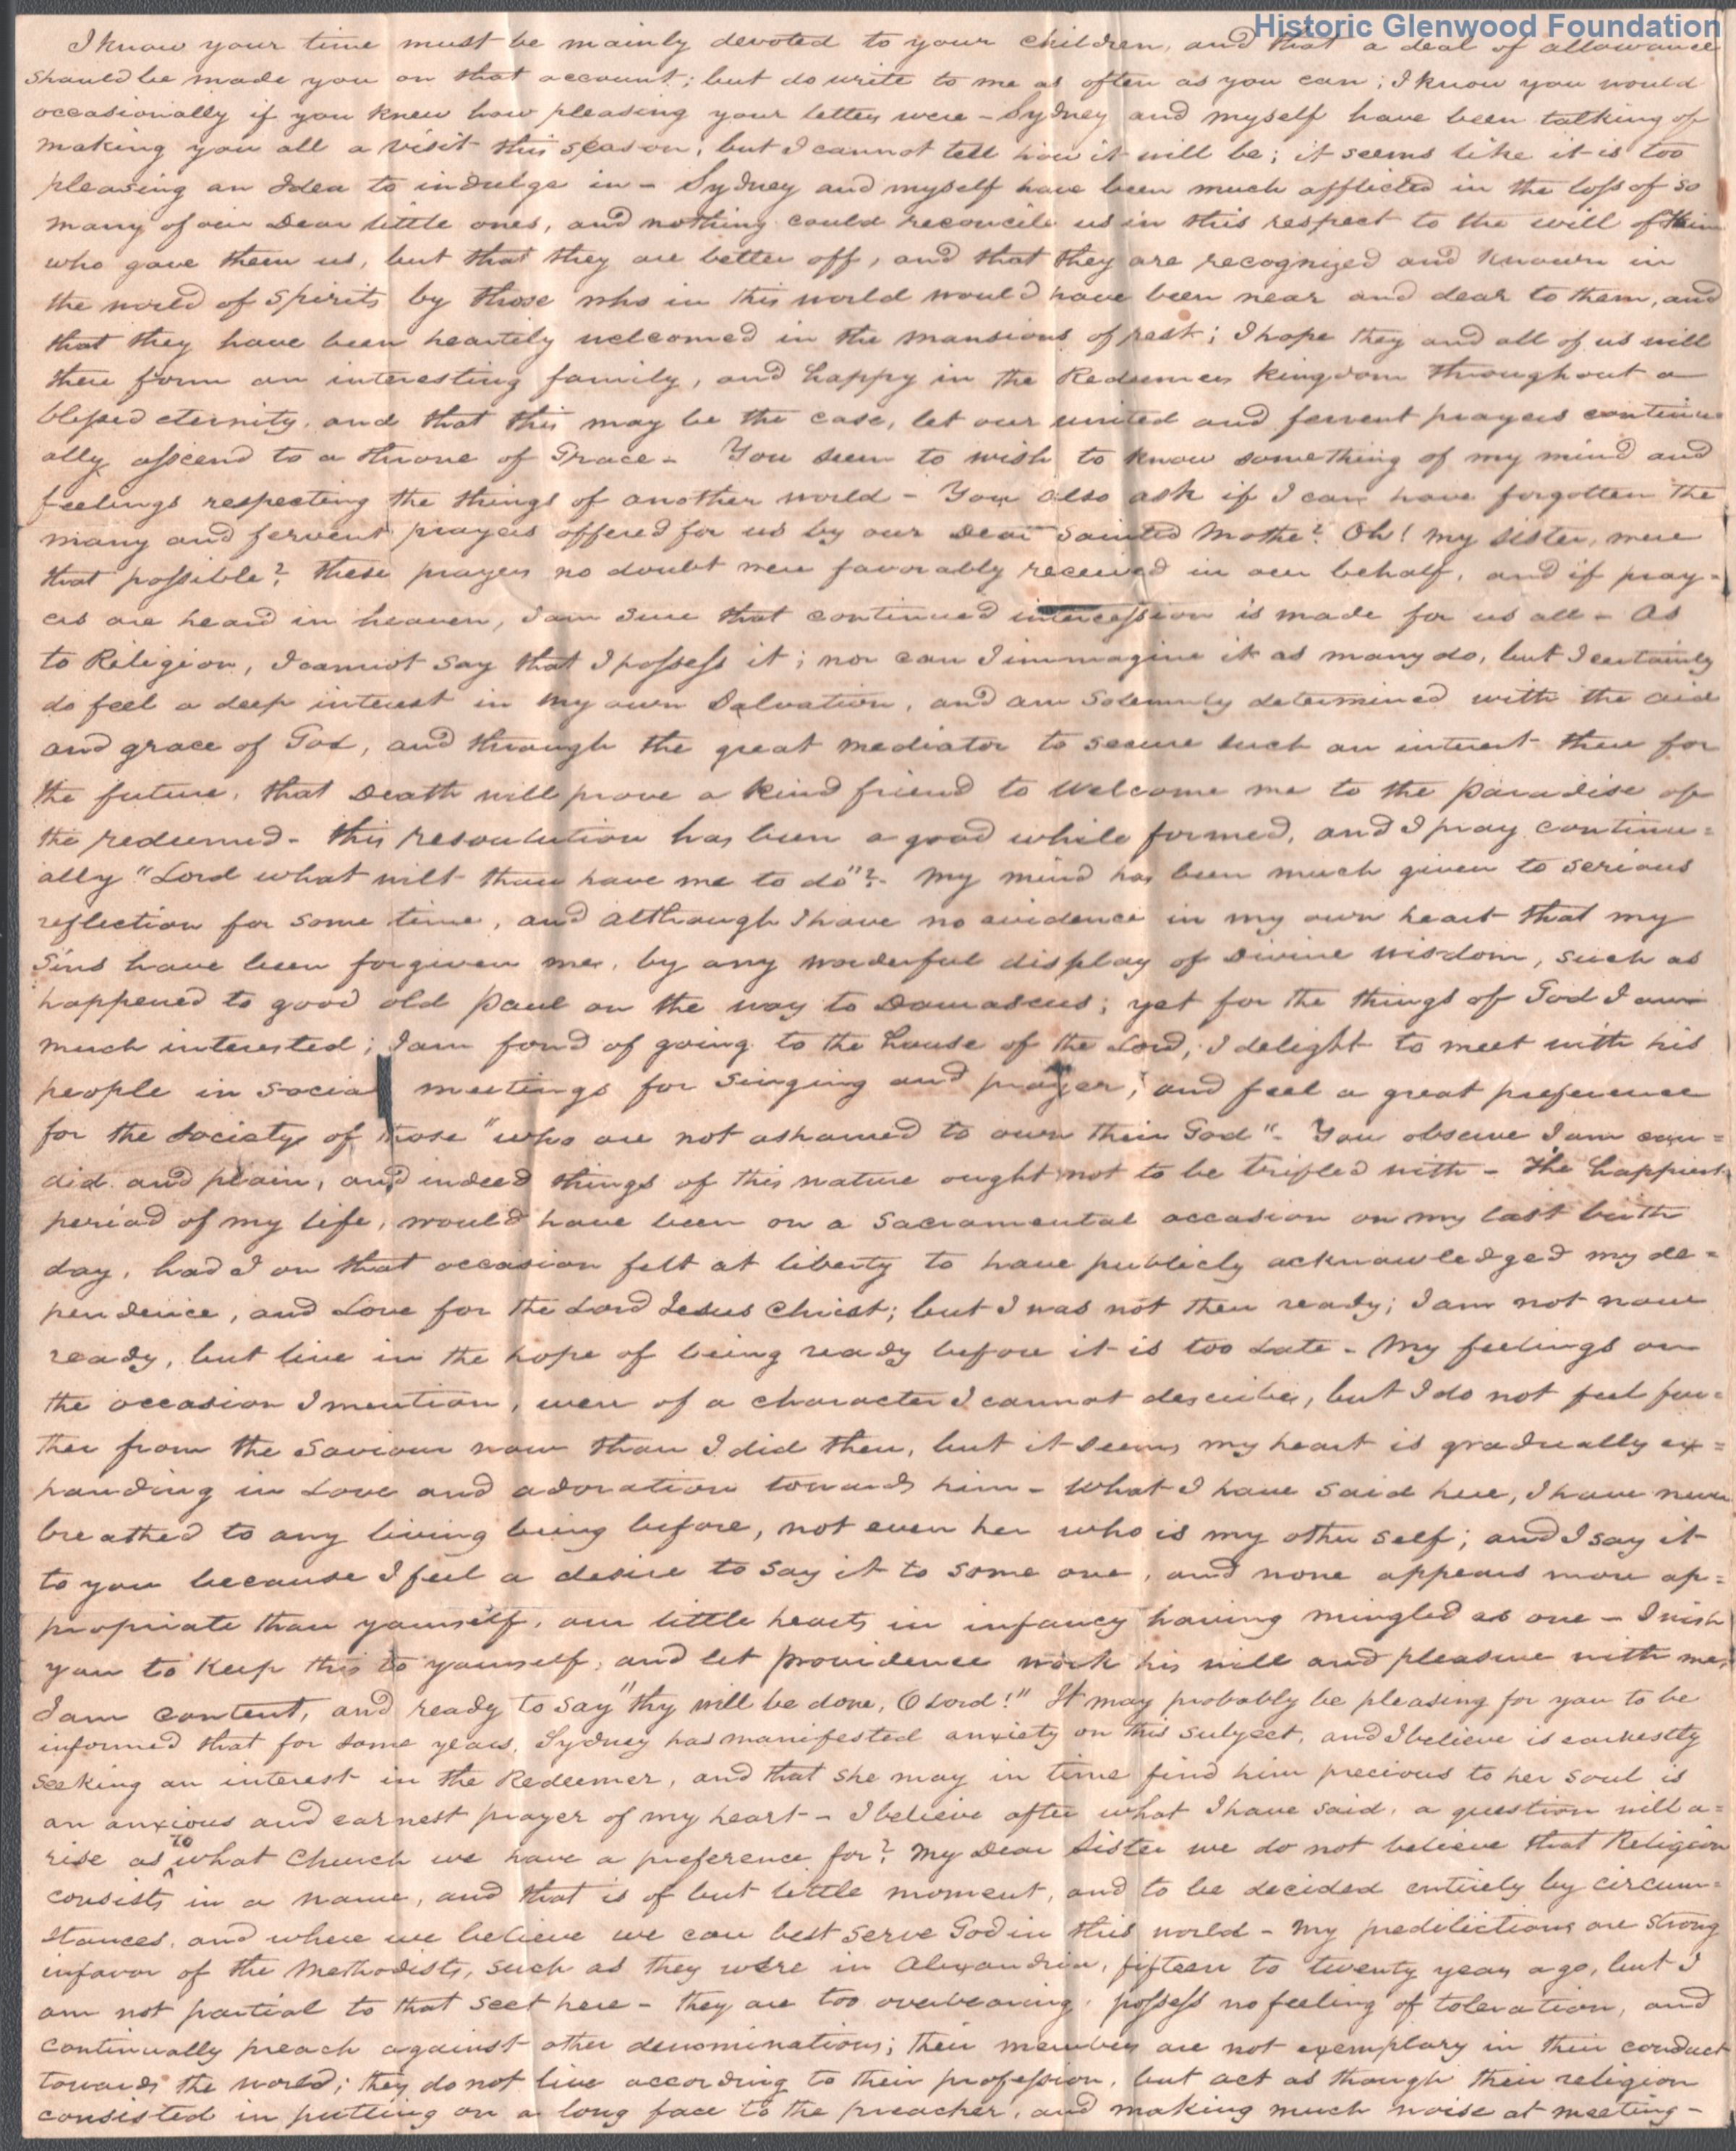 Historic Glenwood Foundation
I know your time must be mainly devoted to your children, and that a deal of allowance
should be made you on that account; but do write to me as often as you can; I know you would
occasionally if you knew how pleasing your letters were - Sydney and myself have been talking of
making you all a visit this season, but I cannot tell how it will be; it seems like it is too
pleasing an Idea to indulge in - Sydney and myself have been much afflicted in the loss of so
many of our Dear little ones, and nothing could reconcile us in this respect to the will of Him
who gave them us, but that they are better off, and that they are recognized and known in
the world of spirits by those who in this world would have been near and dear to them, and
that they have been heartily welcomed in the mansions of rest; I hope they and all of us will
there form an interesting family, and happy in the Redeemers kingdom throughout a
blessed eternity, and that this may be the case, let our united and fervent prayers continu
ally asscend to a throne of Grace - You seem to wish to know something of my mind and
feelings respecting the things of another world - You also ask if I can have forgotten the
many and fervent prayers offered for us by our Dear Sainted Mother? Oh! my sister, were
that possible? these prayers no doubt were favorably received in our behalf, and if pray-
ers are heard in heaven, I am sure that continued intercession is made for us all - As
to Religion, I cannot say that I possess it; nor can I immagine it as many do, but I certainly
do feel a deep interest in my own Salvation, and am solemnly determined with the aid
and grace of God, and through the great mediator to secure such an interest there for
the future, that Death will prove a kind friend to Welcome me to the paradise of
the redeemed - this resoulution has been a good while formed, and I pray continu=
ally "Lord what wilt thou have me to do"? - My mind has been much given to serious
reflection for some time, and although I have no evidence in my own heart that my
Sins have been forgiven me, by any wonderful display of Divine wisdom, such as
happened to good old Paul on the way to Damascus; yet for the things of God I am
much interested; I am fond of going to the house of the Lord; I delight to meet with his
people in social meetings for singing and prayer; and feel a great preference
for the society of those "who are not ashamed to own their God" - You observe I am can=
did and plain, and indeed things of this nature ought not to be trifled with - The happiest
period of my life, would have been on a Sacramental occasion on my last birth
day, had I on that occasion felt at liberty to have publicly acknowledged my de=
pendence, and Love for the Lord Jesus Christ; but I was not then ready; I am not now
ready, but live in the hope of being ready before it is too Late - My feelings on
the occasion I mention, were of a character I cannot describe, but I do not feel fur=
ther from the Saviour now than I did then, but it seems my heart is gradually ex=
panding in Love and adoration towards him - What I have said here, I have never
breathed to any living being before, not even her who is my other self; and I say it
to you because I feel a desire to say it to some one, and none appears more ap=
propriate than yourself, our little hearts in infancy having mingled as one - I wish
you to keep this to yourself, and let providence work his will and pleasure with me,
I am content, and ready to say "thy will be done, O Lord!" It may probably be pleasing for you to be
informed that for some years, Sydney has manifested anxiety on this subject, and I believe is earnestly
seeking an interest in the Redeemer, and that she may in time find him precious to her soul is
an anxious and earnest prayer of my heart - I believe after what I have said, a question will a=
rise as to what Church we have a preference for? My Dear Sister we do not believe that Religion
consists in a name, and that is of but little moment, and to be decided entirely by circum=
stances, and where we believe we can best serve God in this world - My predilictions are strong
infavor of the Methodists, such as they were in Alexandria, fifteen to twenty years ago, but I
am not partial to that sect here - they are too overbearing, possess no feeling of toleration, and
continually preach against other denominations; their members are not exemplary in their conduct
towards the world; they do not live according to their profession, but act as though their religion
consisted in putting on a long face to the preacher, and making much noise at meeting -